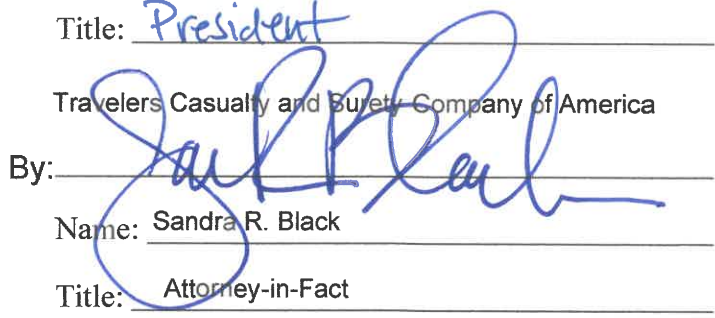 Title: President
Travelers Casualty and Surety Company of America
By:
Name: Sandra R. Black
Title: Attorney-in-Fact